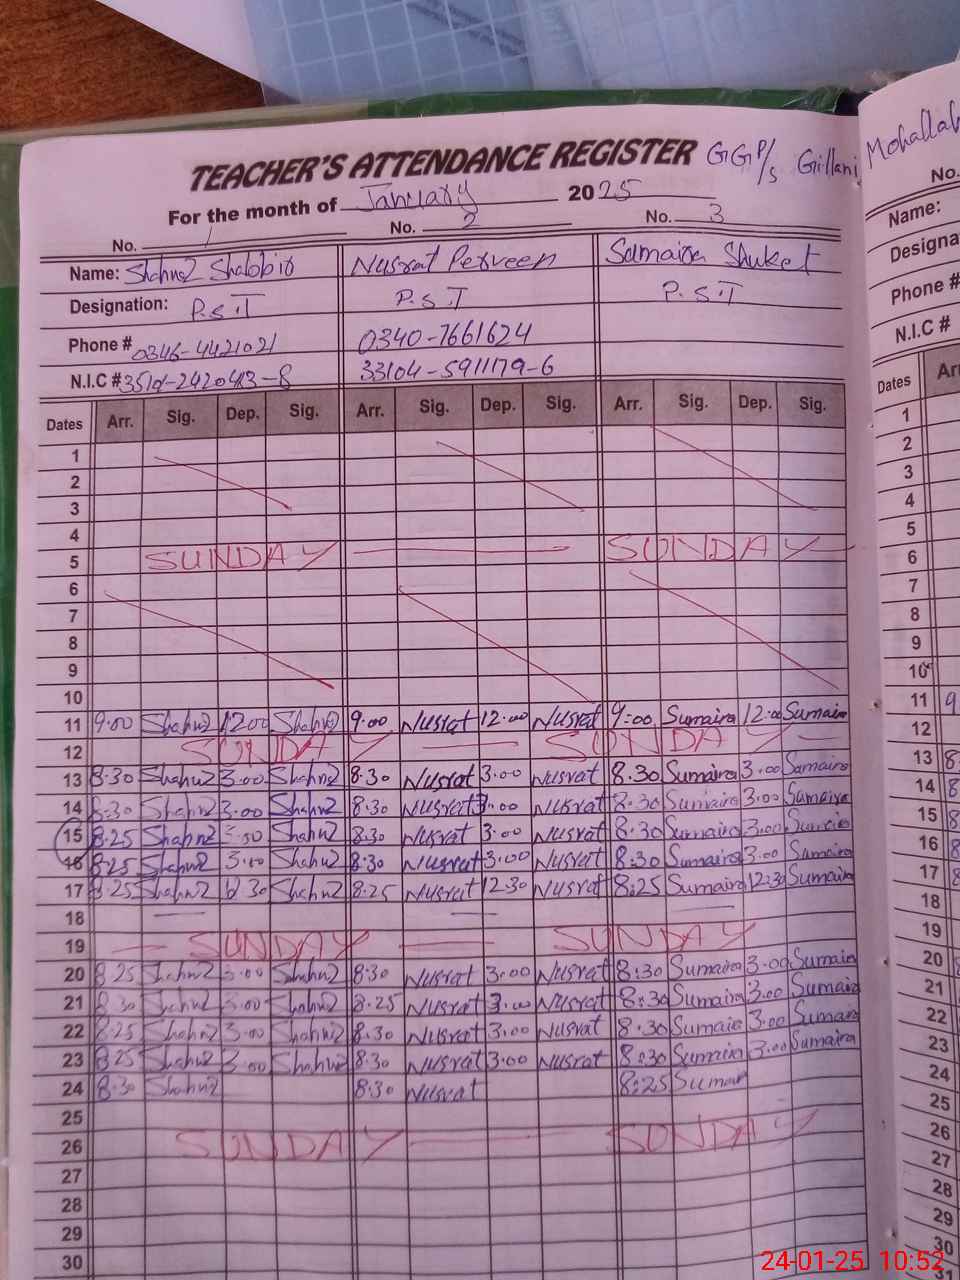 TEACHER'S ATTENDANCE REGISTER GGP/S Gillani Mohallah
For the month of January 2025
No. 1 No. 2 No. 3
Name: Shahnaz Shabbir Nusrat Perveen Sumaira Shuket
Designation: P.S.T P.S.T P.S.T
Phone # 0346-4421021 0340-7661624
N.I.C # 33104-5911179-6
Dates Arr. Sig. Dep. Sig. Arr. Sig. Dep. Sig. Arr. Sig. Dep. Sig.
1
2
3
4
5 SUNDAY SUNDAY
6
7
8
9
10
11 9.00 Shahnaz 12.00 Shahnaz 9.00 Nusrat 12.00 Nusrat 9:00 Sumaira 12:00 Sumaira
12 SUNDAY SUNDAY
13 8.30 Shahnaz 3.00 Shahnaz 8.30 Nusrat 3.00 Nusrat 8.30 Sumaira 3.00 Sumaira
14 8.30 Shahnaz 3.00 Shahnaz 8.30 Nusrat 3.00 Nusrat 8.30 Sumaira 3.00 Sumaira
15 8.25 Shahnaz Shahnaz 8.30 Nusrat 3.00 Nusrat 8.30 Sumaira 3.00 Sumaira
16 8.25 Shahnaz 3.00 Shahnaz 8.30 Nusrat 3.00 Nusrat 8:30 Sumaira 3.00 Sumaira
17 8.25 Shahnaz 12.30 Shahnaz 8.25 Nusrat 12.30 Nusrat 8:25 Sumaira 12:30 Sumaira
18
19 SUNDAY SUNDAY
20 8.25 Shahnaz 3.00 Shahnaz 8.30 Nusrat 3.00 Nusrat 8:30 Sumaira 3.00 Sumaira
21 8.30 Shahnaz 3.00 Shahnaz 8.25 Nusrat 3.00 Nusrat 8:30 Sumaira 3.00 Sumaira
22 8.25 Shahnaz 3.00 Shahnaz 8.30 Nusrat 3.00 Nusrat 8.30 Sumaira 3.00 Sumaira
23 8.25 Shahnaz 3.00 Shahnaz 8.30 Nusrat 3.00 Nusrat 8:30 Sumaira 3.00 Sumaira
24 8.30 Shahnaz 8.30 Nusrat 8:25 Sumaira
25
26 SUNDAY SUNDAY
27
28
29
30
No.
Name:
Designa
Phone #
N.I.C #
Dates Arr
1
2
3
4
5
6
7
8
9
10
11 9
12
13 8
14 8
15 8
16 8
17 8
18
19
20 8
21 8
22 8
23 8
24 8
25
26
27
28
29
30
31
24-01-25 10:52